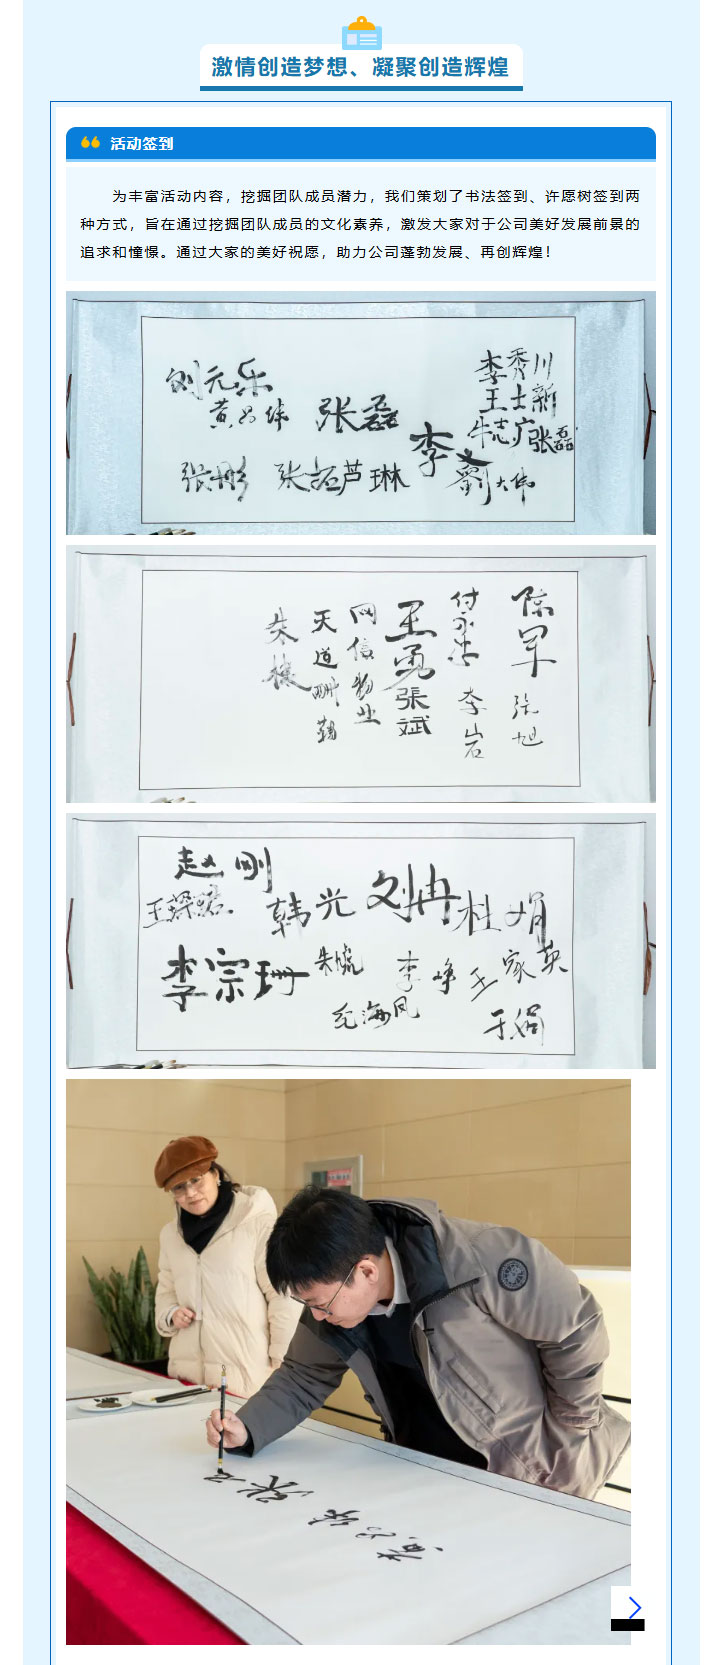 激情创造梦想、凝聚创造辉煌
活动签到
为丰富活动内容，挖掘团队成员潜力，我们策划了书法签到、许愿树签到两
种方式，旨在通过挖掘团队成员的文化素养，激发大家对于公司美好发展前景的
追求和憧憬。通过大家的美好祝愿，助力公司蓬勃发展、再创辉煌！
刘元乐
张磊
李秀川
王士新
牛志广张磊
张彤
张
芦琳
李文
劉大伟
陈军
张旭
付
李岩
王勇
張斌
网信物业
天道酬勤
朱
赵刚
韩光
刘冉
杜娟
李宗珊
朱虓
李峥
王家英
纪海凤
于娟
张